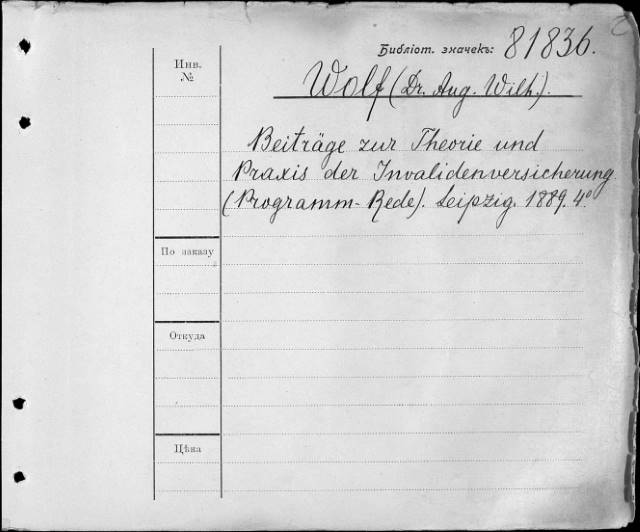 Библіот. значекъ: 81836.
Инв.
№
Wolf (Dr. Aug. Wilh.).
Beiträge zur Theorie und
Praxis der Invalidenversicherung
(Programm-Rede). Leipzig. 1889. 4°
По заказу
Откуда
Цѣна